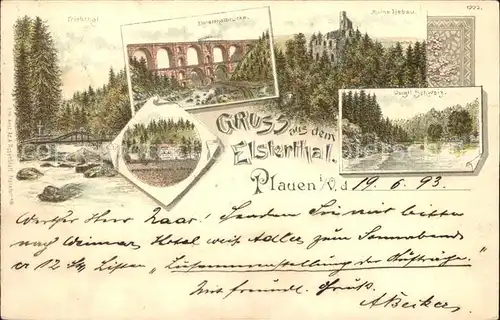 Triebthal
Elsterthalbrücke.
Ruine Liebau.
Voigtl. Schweiz.
GRUSS aus dem
Elsterthal.
Plauen i/V., d 19. 6. 93.
Werther Herr Zaar! Senden Sie mir bitte
nach Weimar Hotel weiß Adler zum Sonnabend
12 Listen „Zusammenstellung der Aufträge."
Mit freundl. Gruß.
A Becker